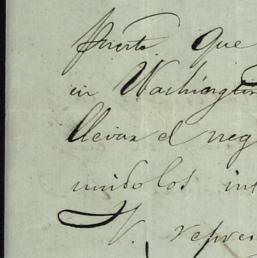 fuerte que
en Washington
llevar el neg
niendo los int
V. repres